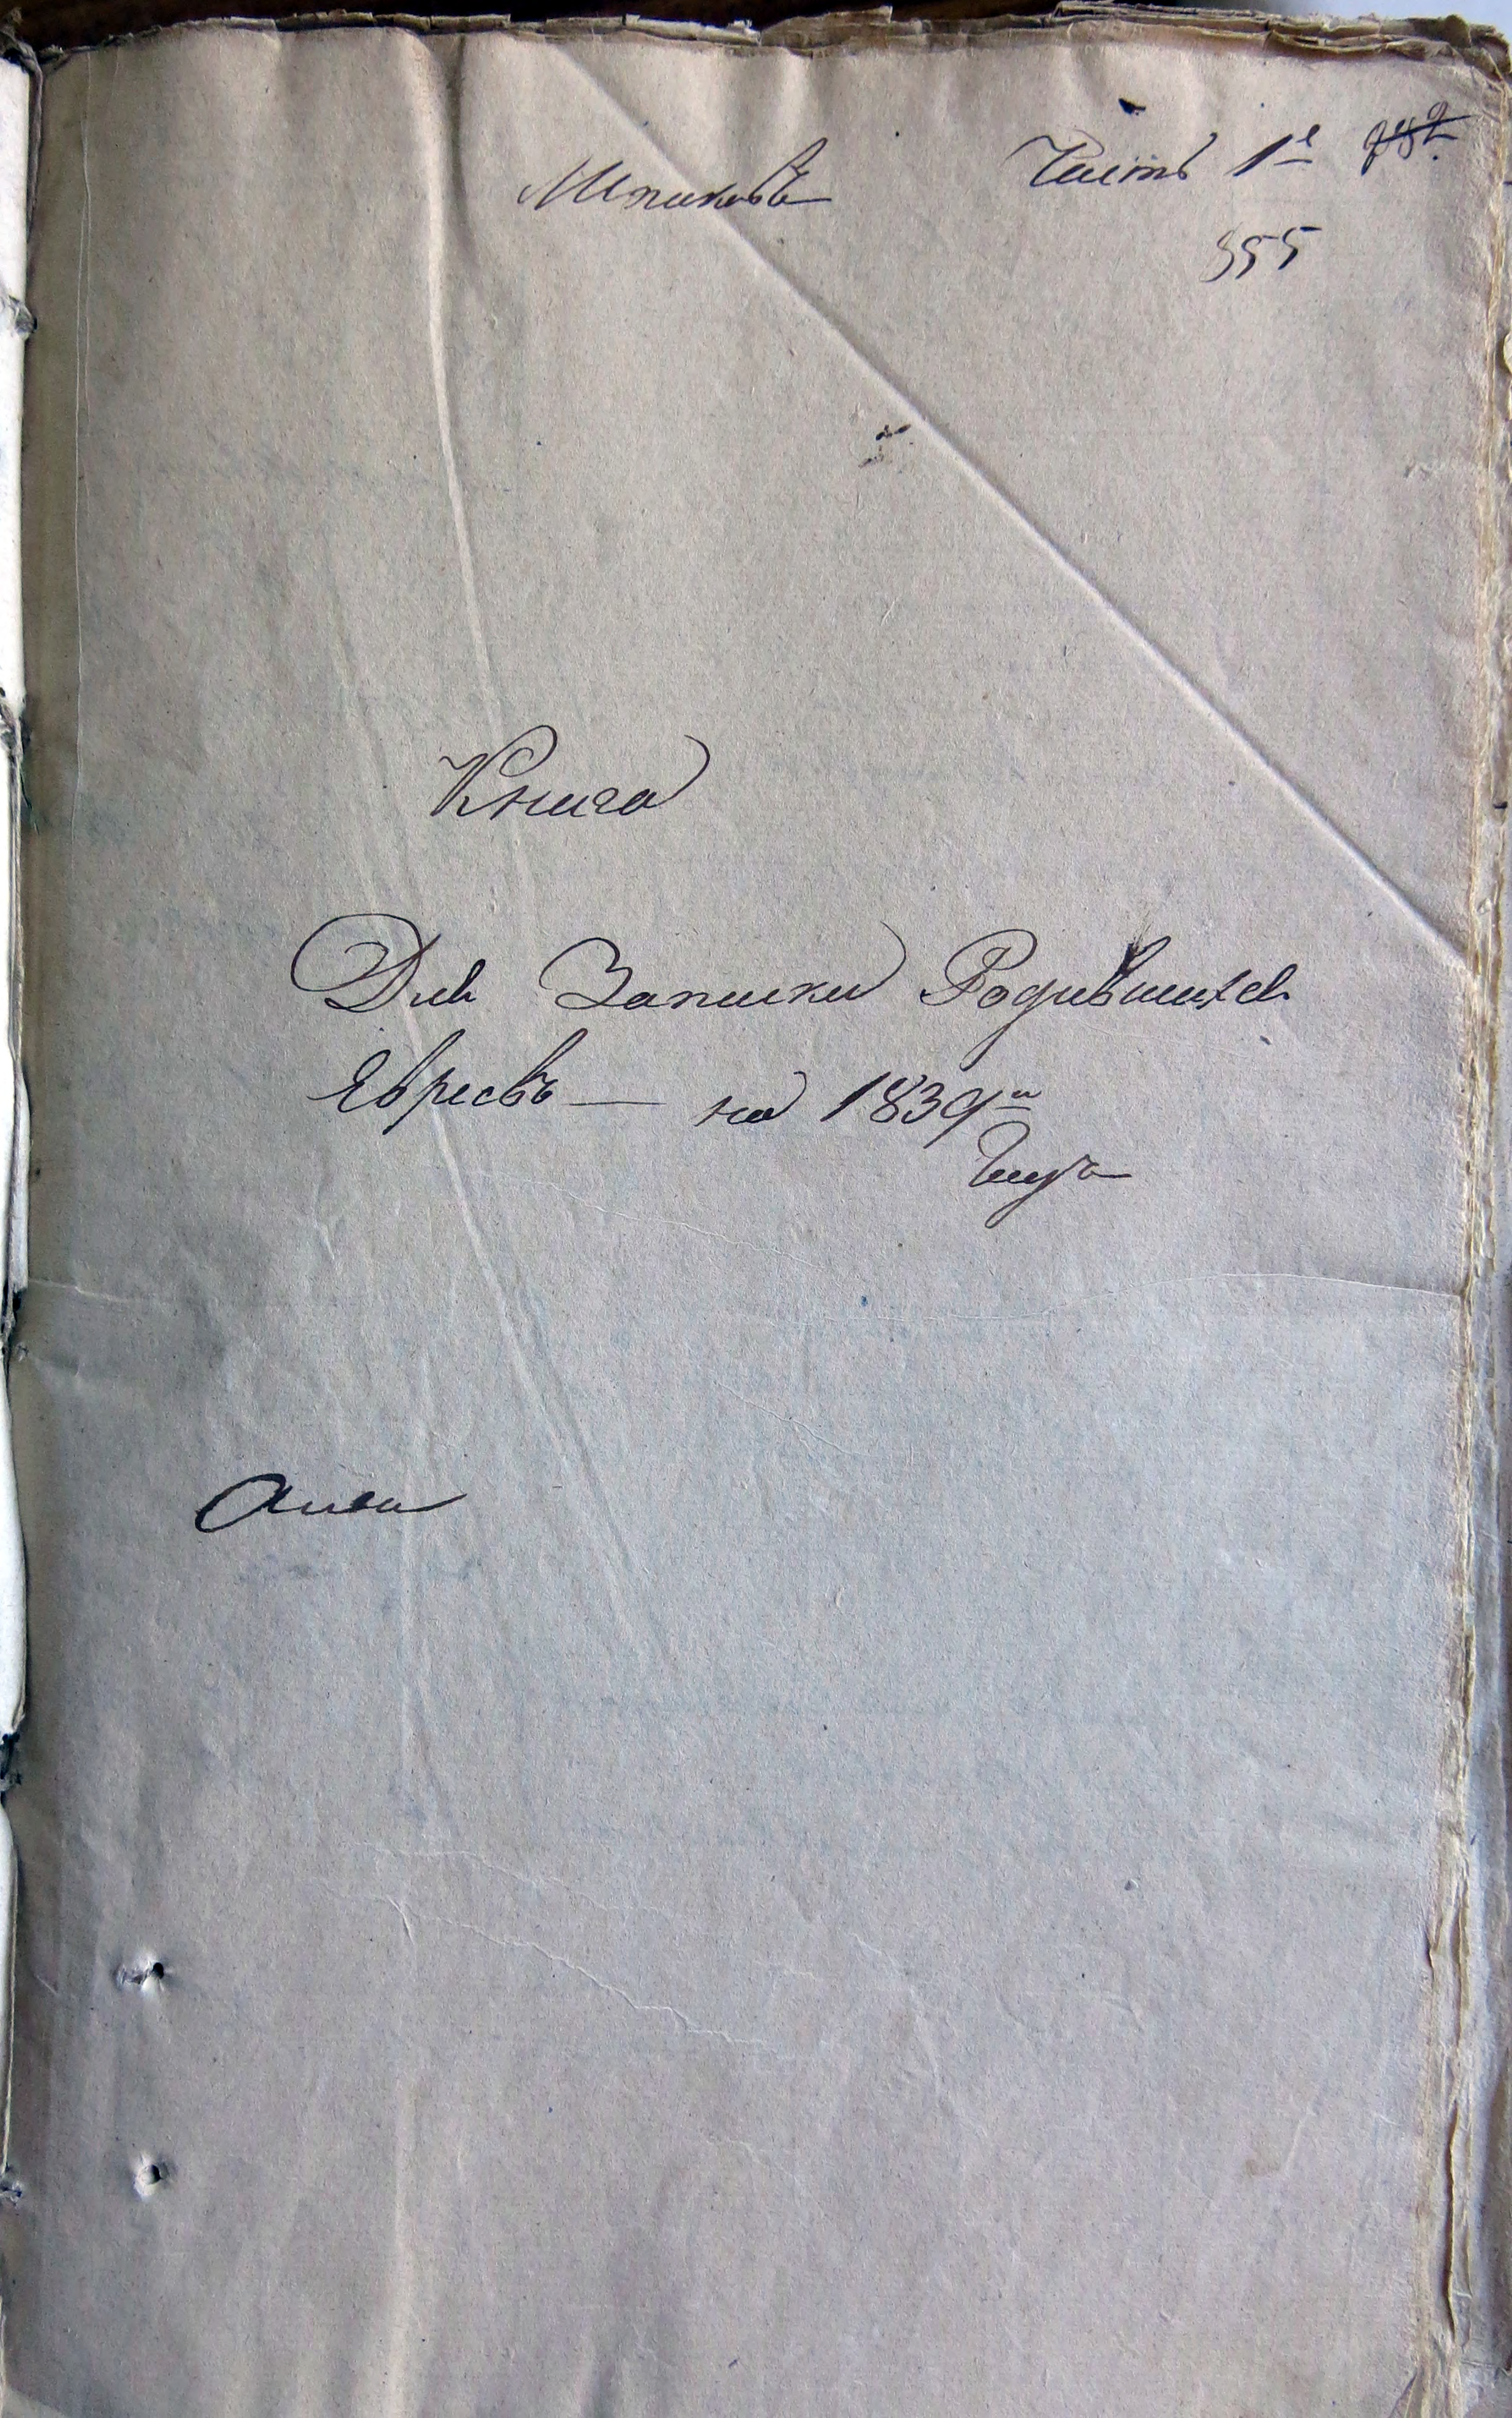 Часть 1я 282
355
Книга
Для Записки Родившихся
Евреевъ — на 1839й
Годъ